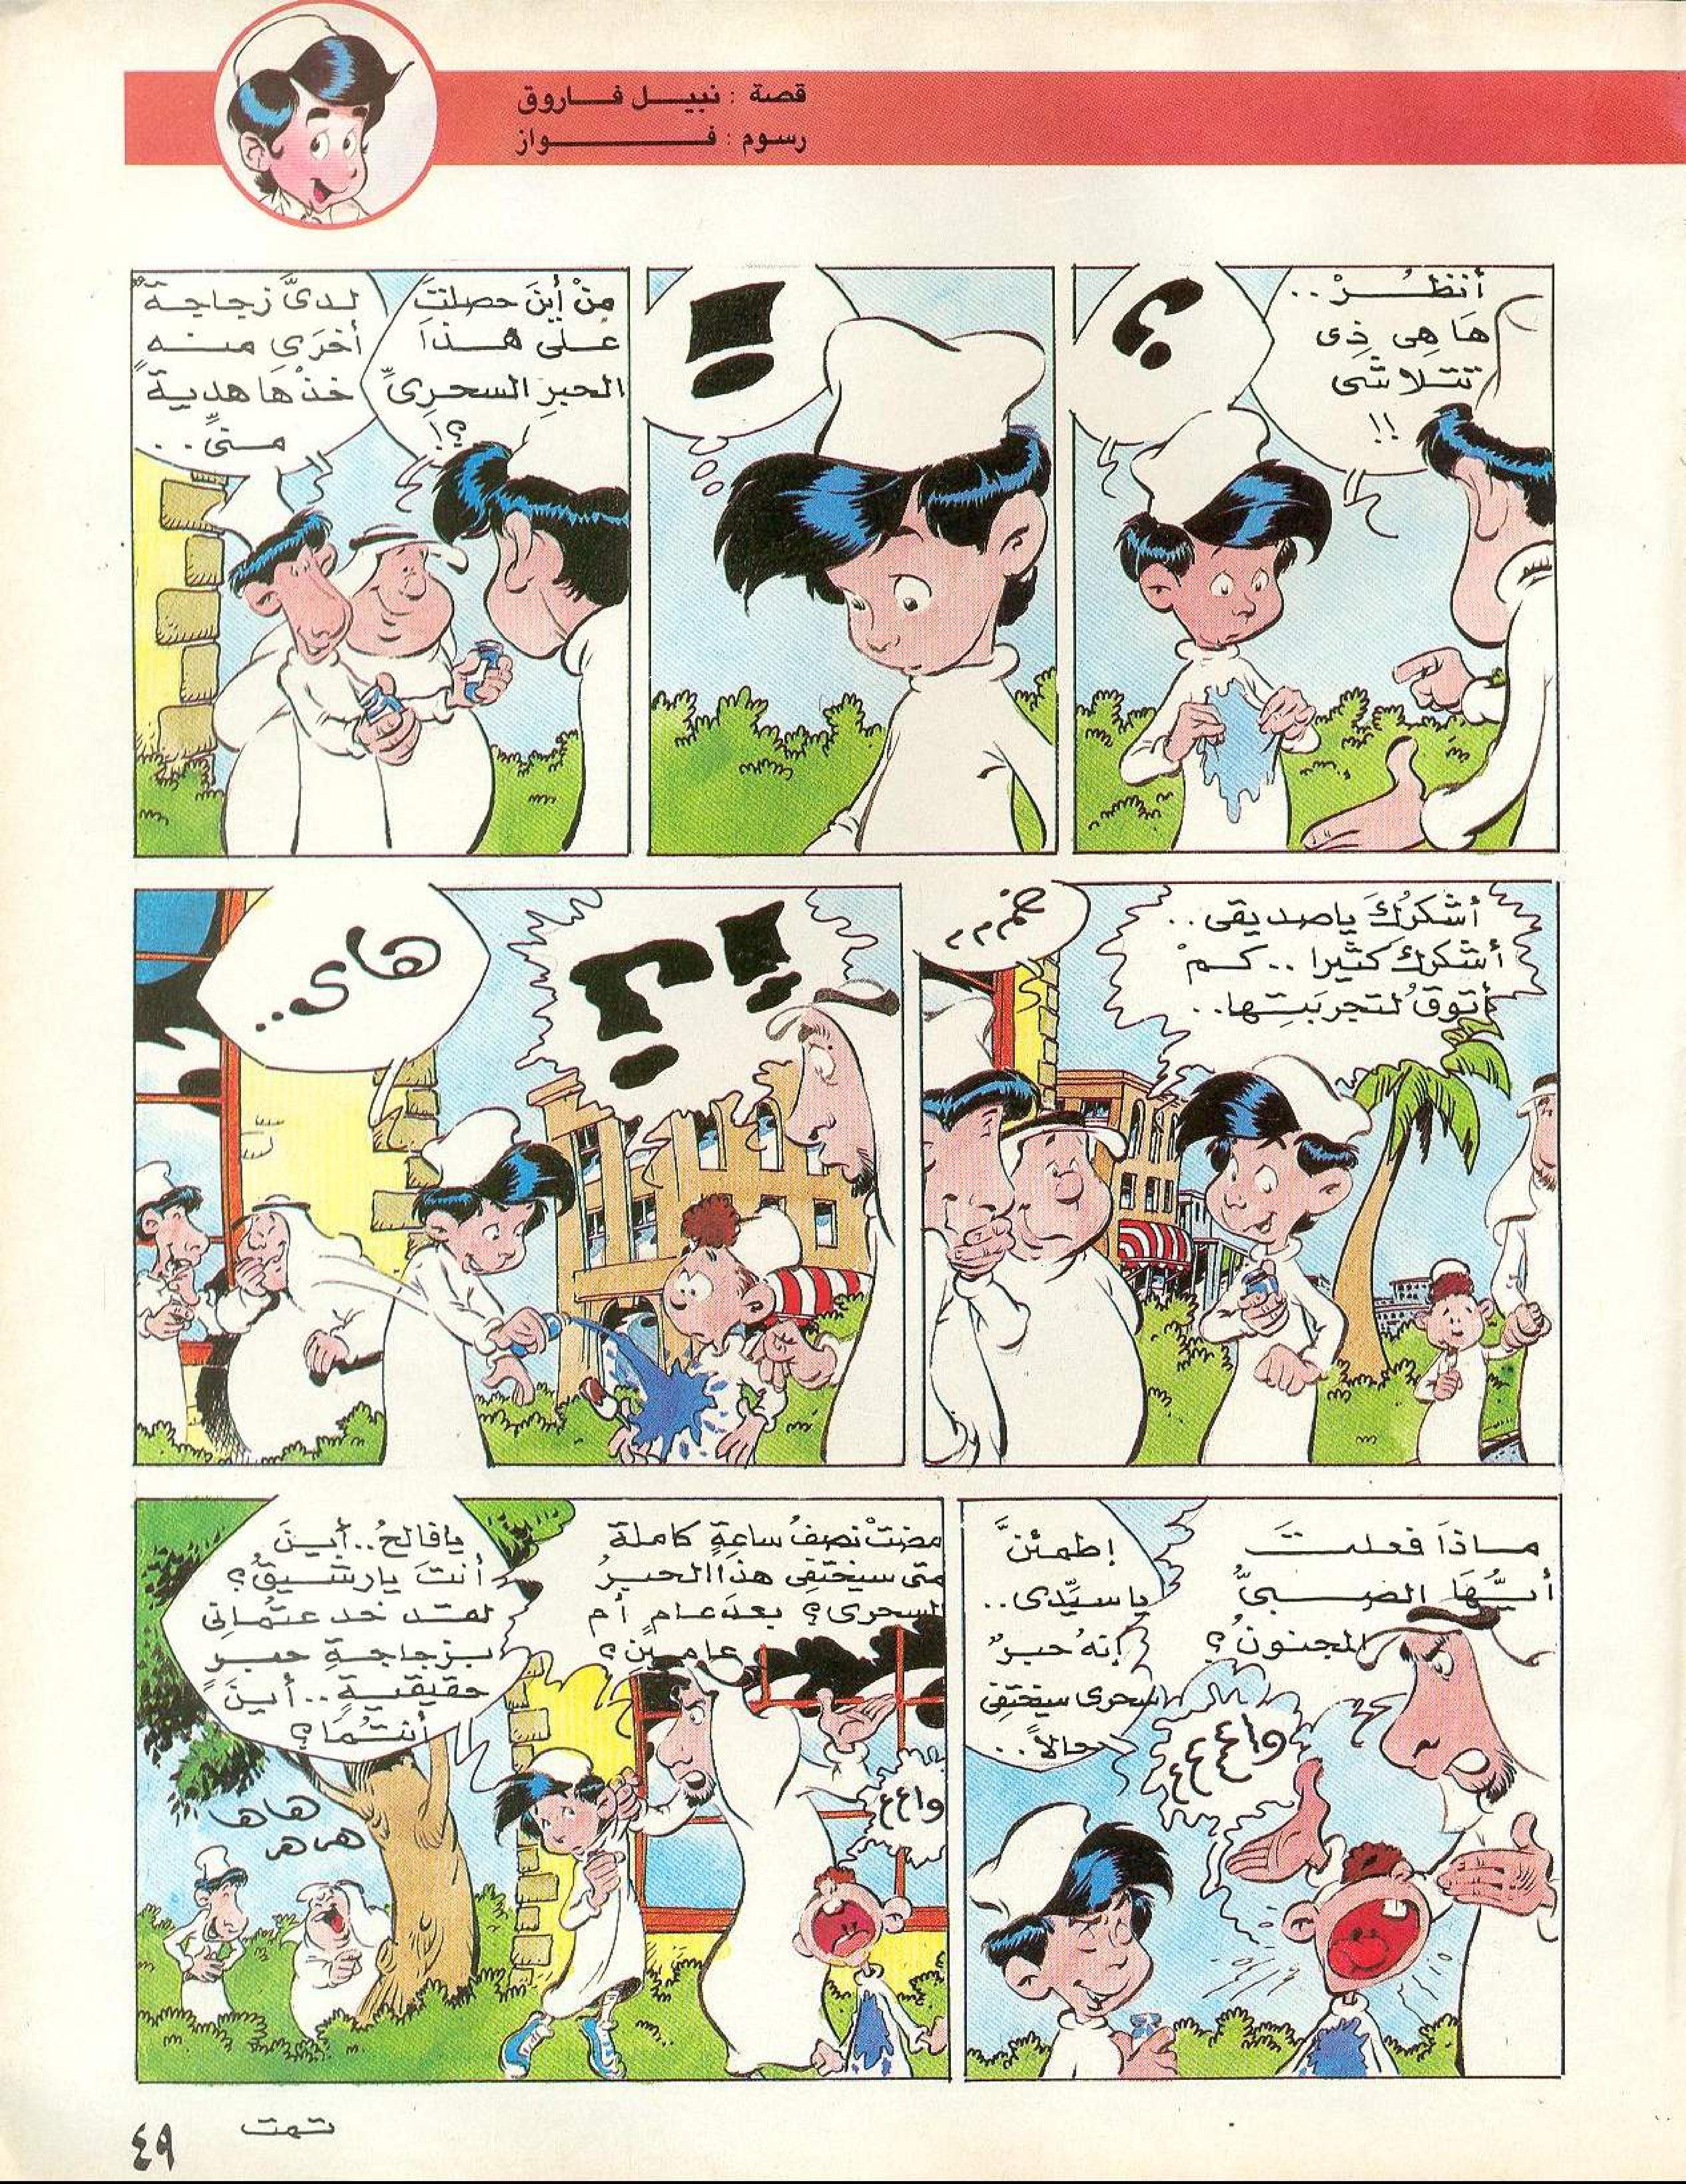 قصة : نبيل فاروق
رسوم : فواز
أنظُرْ..
هَا هِى ذِى
تتلاشَى
!!
؟
!
مِنْ أَينَ حصلتَ
على هذَا
الحبرِ السحرِىِّ
؟!
لدىَّ زجاجةٌ
أخرَى منه
خذْهَا هديةً
منىِّ..
أشكرُكَ ياصديقى..
أشكرك كثيرا .. كمْ
أتوقُ لتجربَتِها..
!؟
هاى..
ماذَا فعلتَ
أيُّهَا الصبىُّ
المجنونُ؟
إطمئنَّ
ياسيِّدى..
إنهُ حبرٌ
سحرى سيختفِى
حالاً..
واععع
مضتْ نصفُ ساعةٍ كاملة
متى سيختفِى هذَا الحبرُ
السحرى؟ بعدَ عامٍ أم
عامينِ؟
يافالحُ.. أينَ
أنتَ يارشيقُ؟
لقد خدعتُمانِى
بزجاجةِ حبرٍ
حقيقيةٍ.. أينَ
أنتُمَا؟
واعع
هاها
هاها
تمت
٤٩